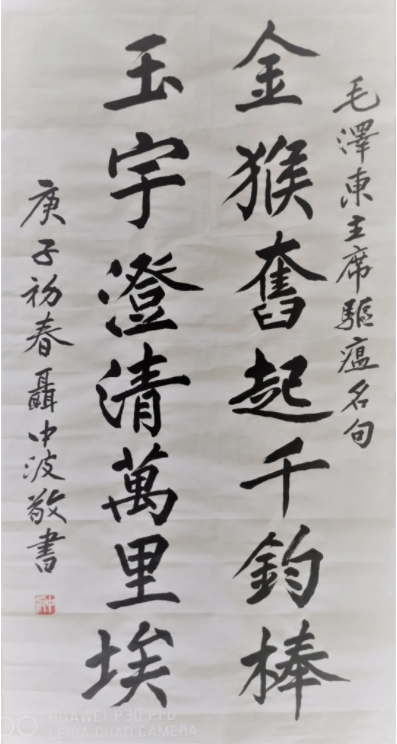 毛澤東主席驅瘟名句
金猴奮起千鈞棒
玉宇澄清萬里埃
庚子初春聶中波敬書
HUAWEI P30 PRO
LEICA QUAD CAMERA